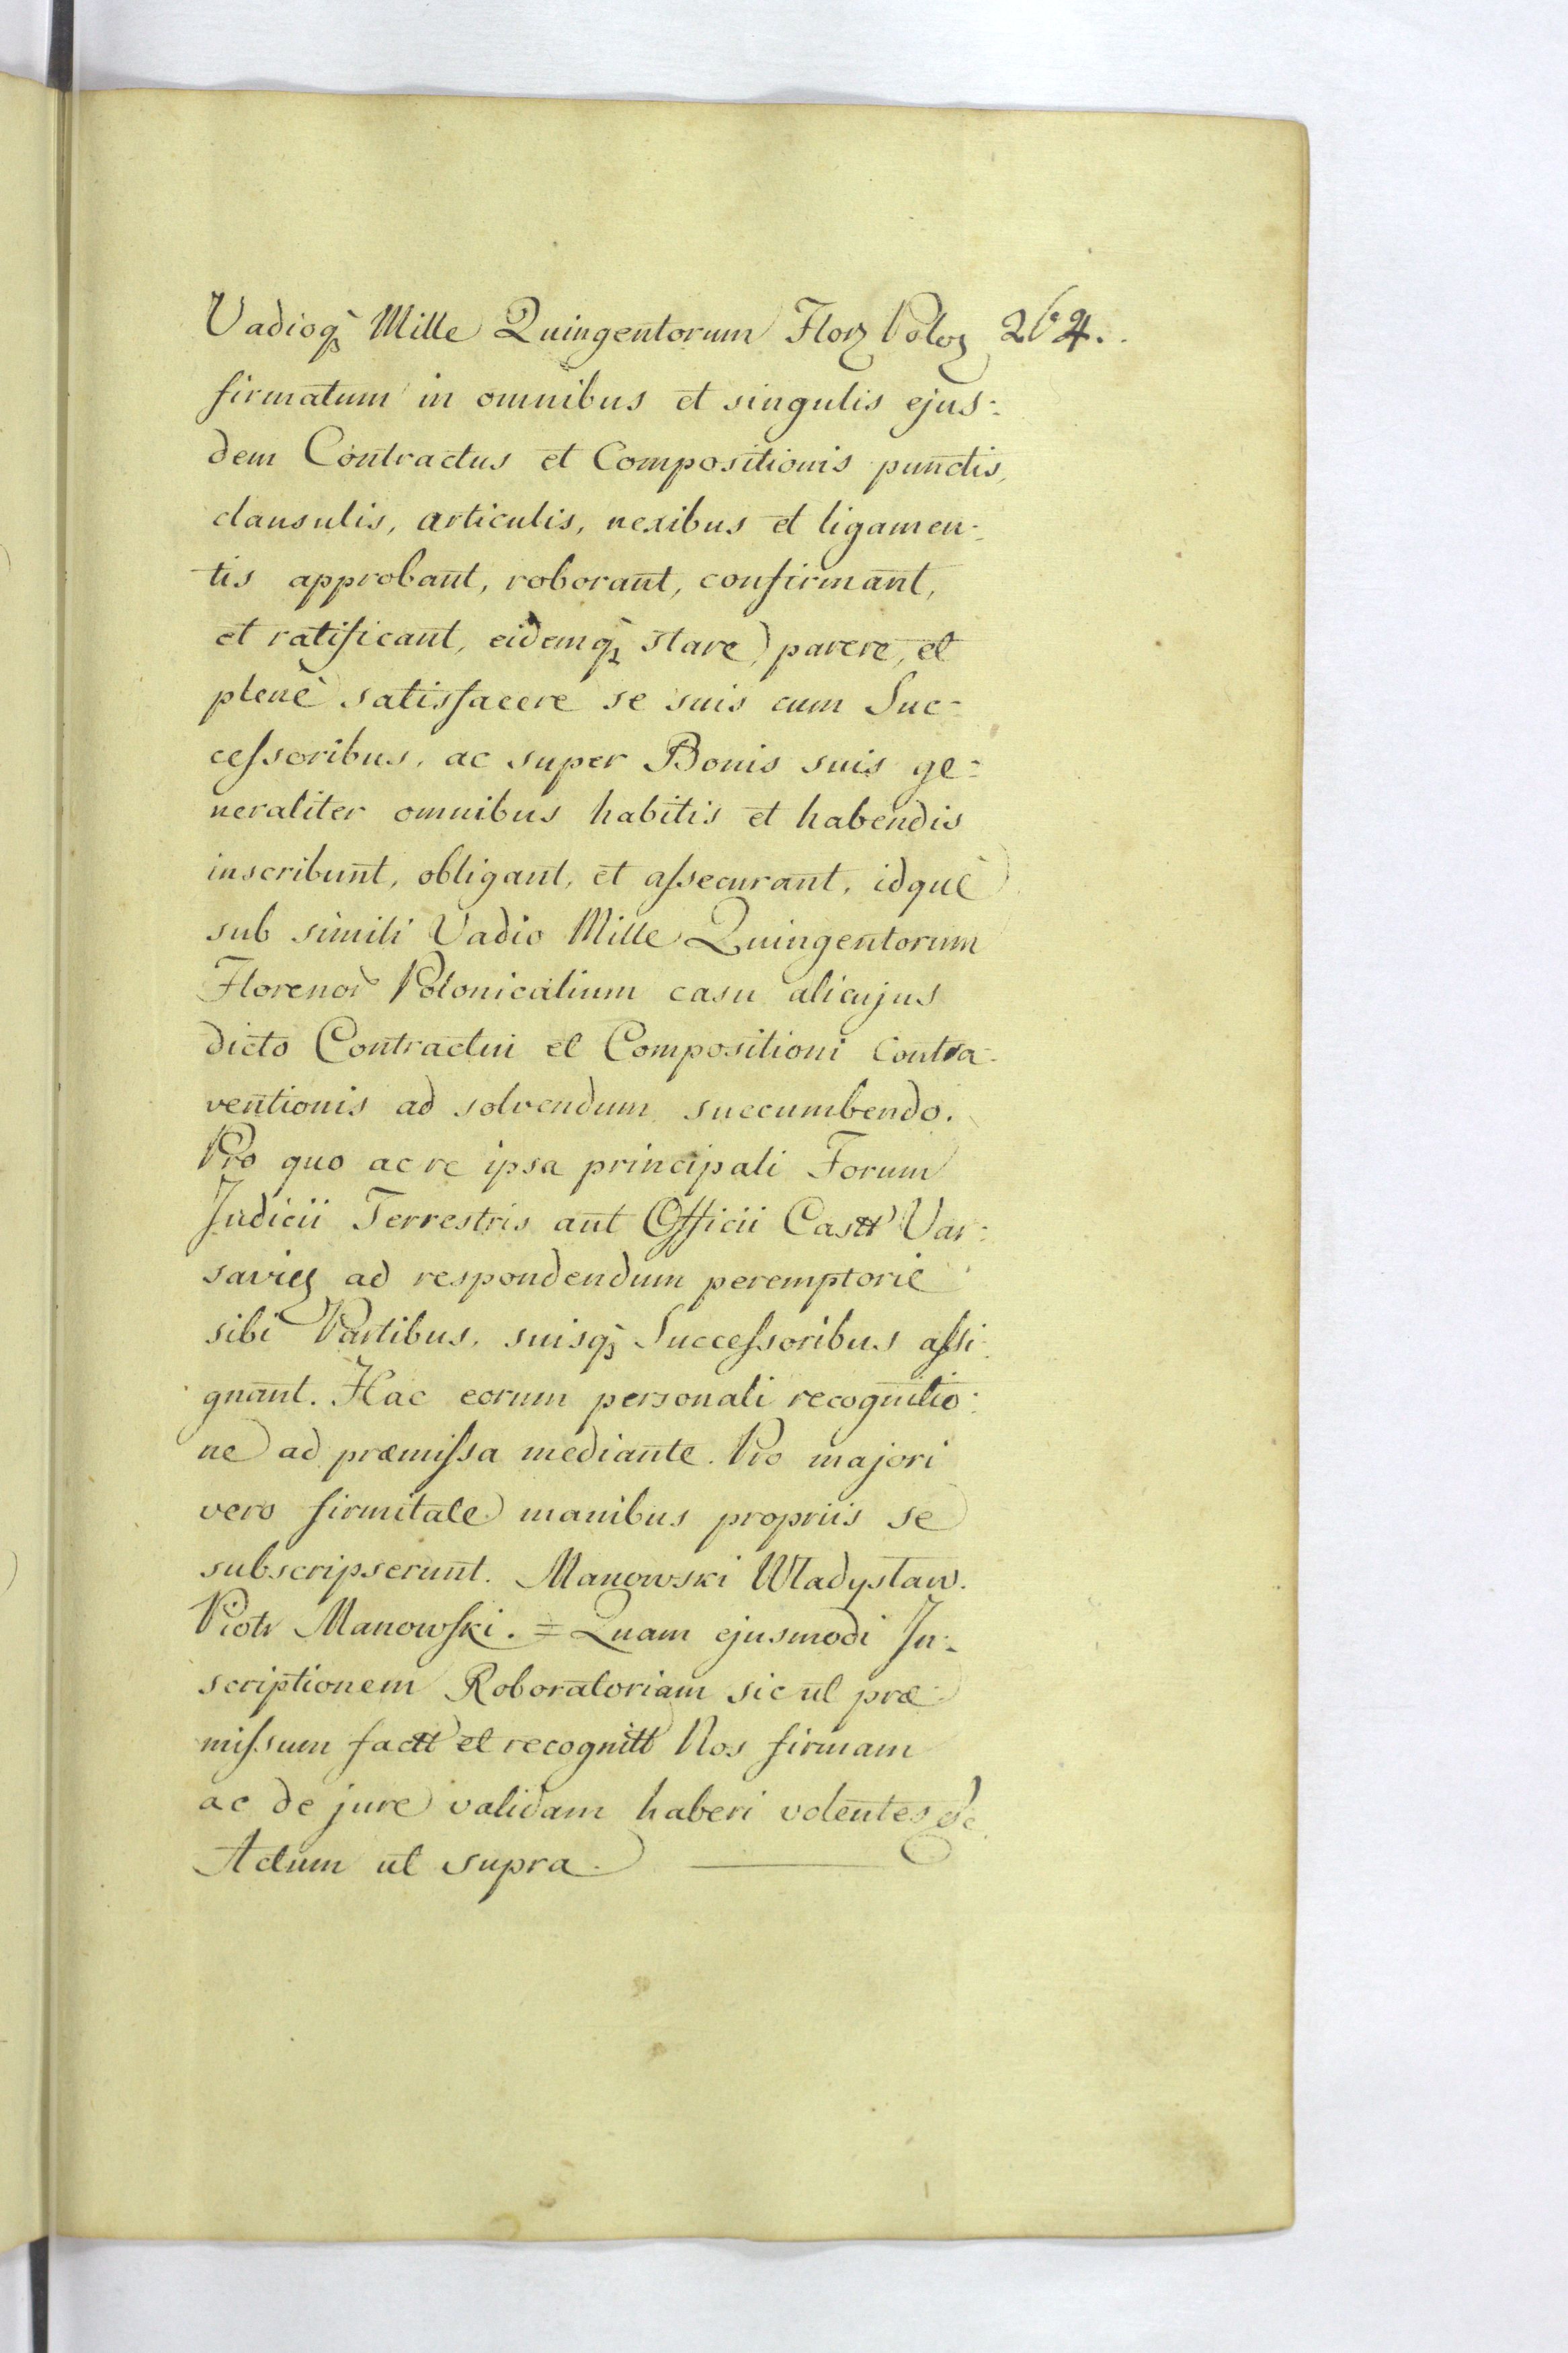 Vadioq̀ꝫ Mille Quingentorum Florꝫ Poloꝫ 264.
firmatum in omnibus et singulis ejus-
dem Contractus et Compositionis punctis,
clausulis, articulis, nexibus et ligamen-
tis approbant, roborant, confirmant,
et ratificant, eidemq̀ꝫ stare, parere, et
plenè satisfacere se suis cum Suc-
cessoribus, ac super Bonis suis ge-
neraliter omnibus habitis et habendis
inscribunt, obligant, et assecurant, idquè
sub simili Vadio Mille Quingentorum
Florenor Polonicalium casu alicujus
dicto Contractui et Compositioni Contra-
ventionis ad solvendum succumbendo.
Pro quo ac re ipsa principali Forum
Judicii Terrestris aut Officii Castr Var-
savieꝫ ad respondendum peremptoriè
sibi Partibus, suisq̀ꝫ Successoribus assi-
gnant. Hac eorum personali recognitio-
ne ad præmissa mediante. Pro majori
vero firmitate manibus propriis se
subscripserunt. Manowski Władysław.
Piotr Manowski. = Quam ejusmodi In-
scriptionem Roboratoriam sic ut præ-
missum factt et recognitt Nos firmam
ac de jure validam haberi volentes &c
Actum ut supra.